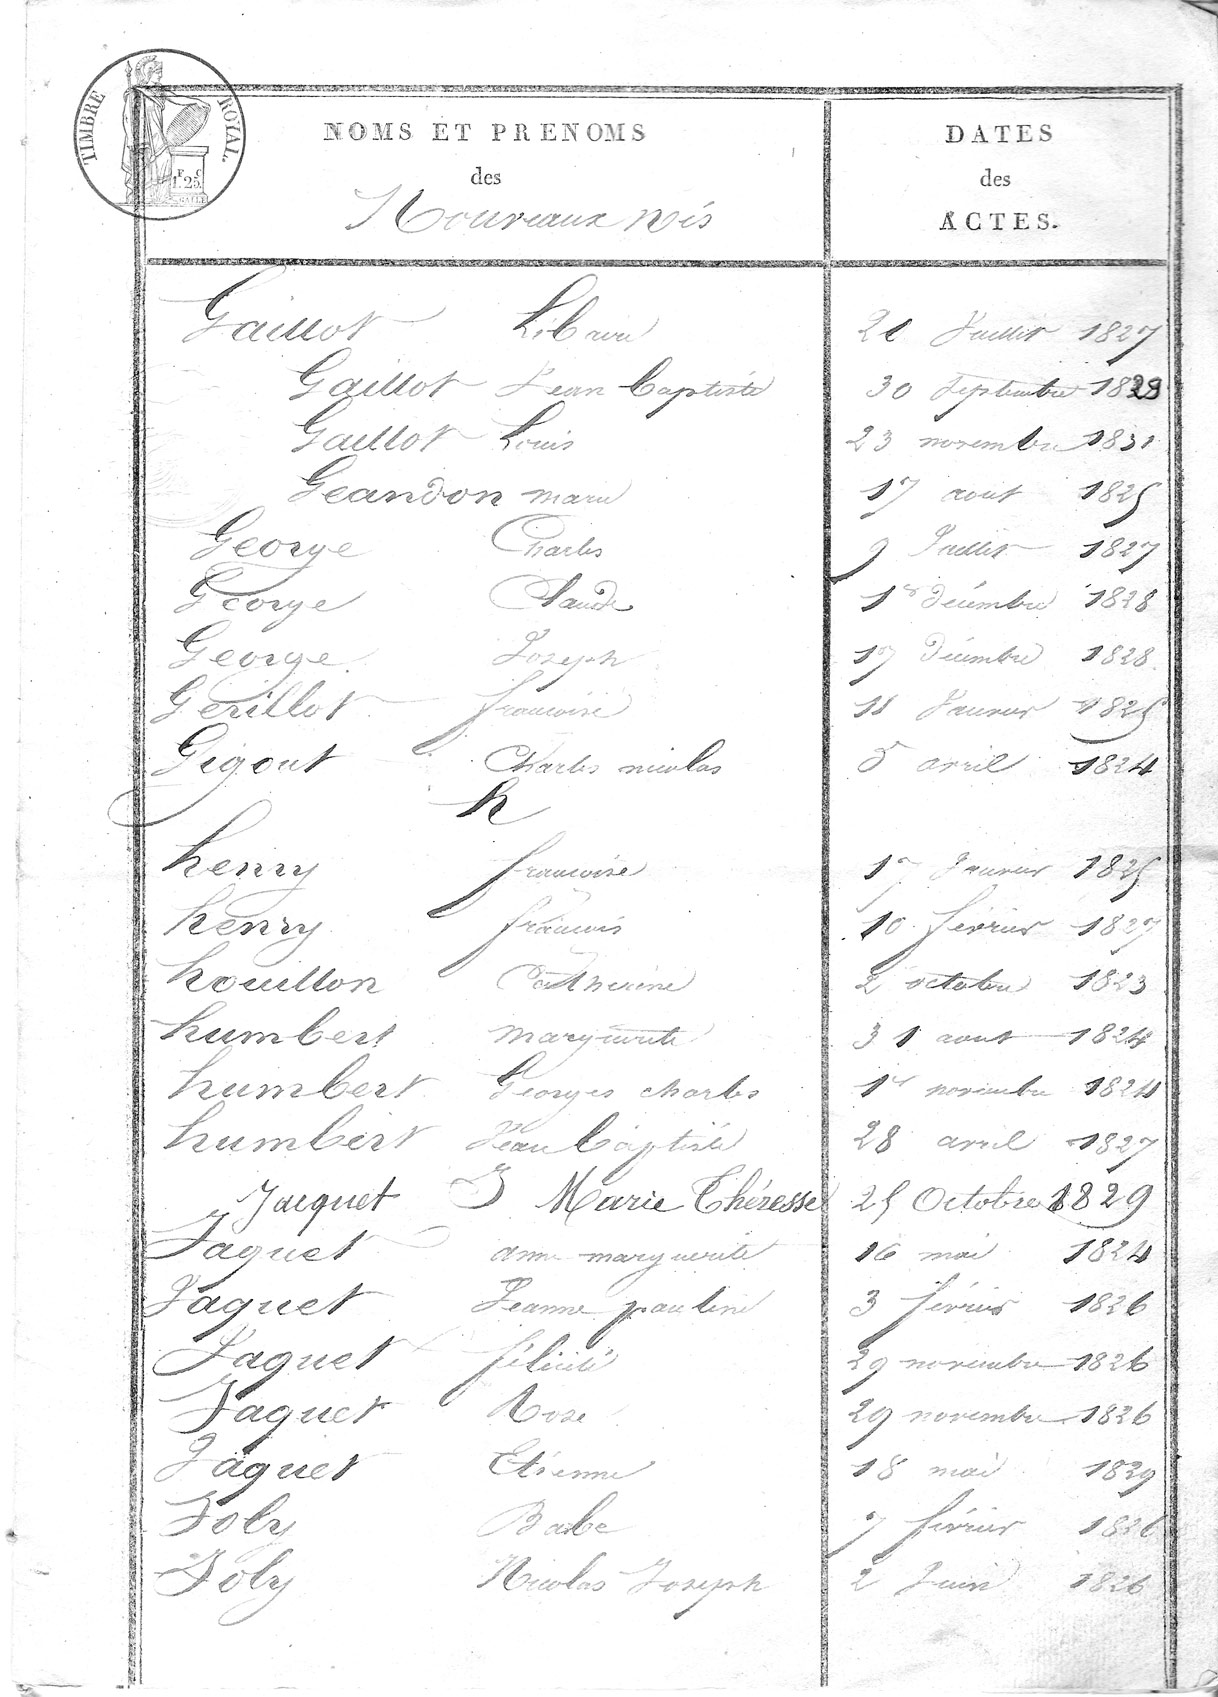 TIMBRE ROYAL.
1.F 25.C
NOMS ET PRENOMS
des
Nouveaux nés
DATES
des
ACTES.
Gaillot Libaire 21 Juillet 1827
Gaillot Jean baptiste 30 septembre 1829
Gaillot Louis 23 novembre 1831
Geandon marie 17 aout 1825
George Charles 9 Juillet 1827
George Claude 1er décembre 1828
George Joseph 17 décembre 1828
Gerillot francoise 11 Janvier 1825
Gigout Charles nicolas 5 avril 1824
h
henry francoise 17 Janvier 1825
henry francois 10 février 1827
houillon Catherine 2 octobre 1823
humbert marguerite 31 aout 1824
humbert Georges charles 1er novembre 1824
humbert Jean baptiste 28 avril 1827
J
Jacquet Marie Théresse 25 Octobre 1829
Jaquet anne marguerite 16 mai 1824
Jaquet Jeanne pauline 3 février 1826
Jaquet félicité 29 novembre 1826
Jaquet Rose 29 novembre 1826
Jaquet Etienne 18 mai 1829
Joly Barbe 7 février 1826
Joly Nicolas Joseph 2 Juin 1826